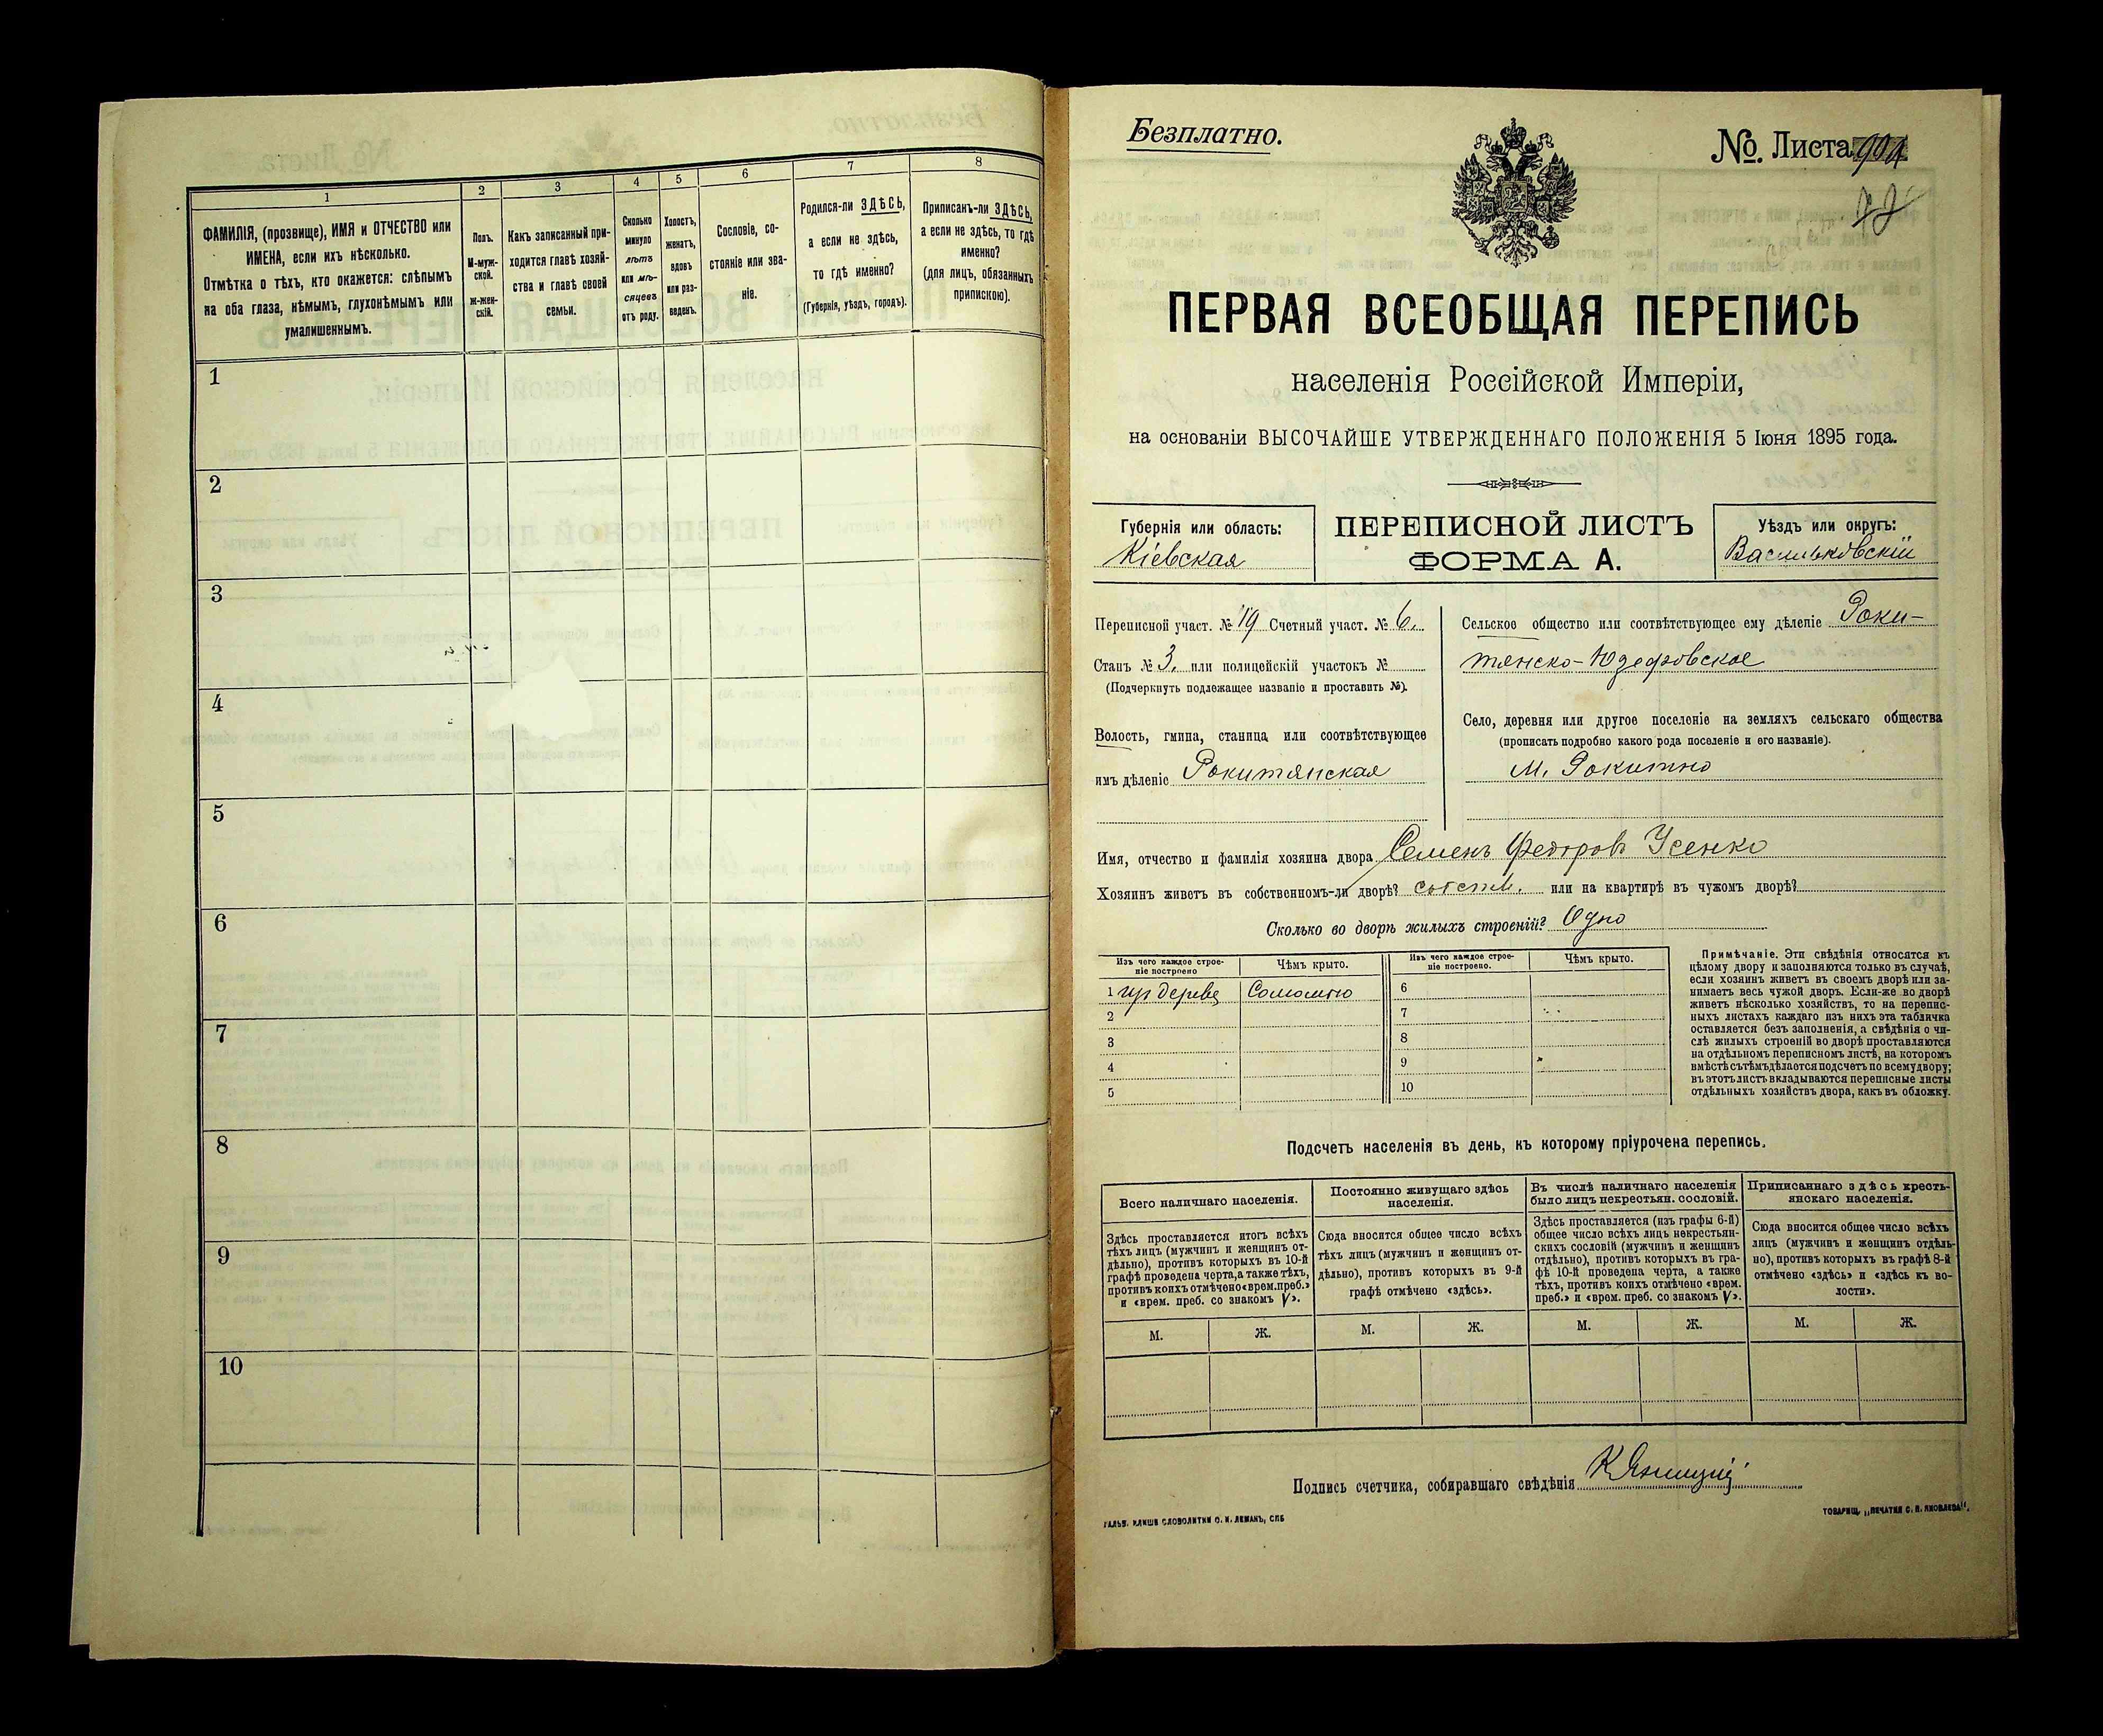 1
2
3
4
5
6
7
8
ФАМИЛІЯ, (прозвище), ИМЯ и ОТЧЕСТВО или
ИМЕНА, если ихъ нѣсколько.
Отмѣтка о тѣхъ, кто окажется: слѣпымъ
на оба глаза, нѣмымъ, глухонѣмымъ или
умалишеннымъ.
Полъ.
М-муж-
ской.
ж-жен-
скій.
Какъ записанный при-
ходится главѣ хозяй-
ства и главѣ своей
семьи.
Сколько
минуло
лѣтъ
или мѣ-
сяцевъ
отъ роду.
Холостъ,
женатъ,
вдовъ
или раз-
веденъ.
Сословіе, со-
стояніе или зва-
ніе.
Родился-ли ЗДѢСЬ,
а если не здѣсь,
то гдѣ именно?
(Губернія, уѣздъ, городъ).
Приписанъ-ли ЗДѢСЬ,
а если не здѣсь, то гдѣ
именно?
(для лицъ, обязанныхъ
припискою).
1
2
3
4
5
6
7
8
9
10
Безплатно.
№. Листа
ПЕРВАЯ ВСЕОБЩАЯ ПЕРЕПИСЬ
населенія Россійской Имперіи,
на основаніи ВЫСОЧАЙШЕ УТВЕРЖДЕННАГО ПОЛОЖЕНІЯ 5 Іюня 1895 года.
Губернія или область:
Кіевская
ПЕРЕПИСНОЙ ЛИСТЪ
ФОРМА А.
Уѣздъ или округъ:
Васильковскій
Переписной участ. № 19 Счетный участ. № 6.
Станъ № 3. или полицейскій участокъ №
(Подчеркнуть подлежащее названіе и проставить №).
Волость, гмина, станица или соотвѣтствующее
имъ дѣленіе Рокитянская
Сельское общество или соотвѣтствующее ему дѣленіе Роки-
тянско-Юзефовское
Село, деревня или другое поселеніе на земляхъ сельскаго общества
(прописать подробно какого рода поселеніе и его названіе).
м. Рокитно
Имя, отчество и фамилія хозяина двора Семенъ Федоровъ Усенко
Хозяинъ живетъ въ собственномъ-ли дворѣ? собств. или на квартирѣ въ чужомъ дворѣ?
Сколько во дворѣ жилыхъ строеній? Одно
Изъ чего каждое строе-
ніе построено
Чѣмъ крыто.
Изъ чего каждое строе-
ніе построено.
Чѣмъ крыто.
1 изъ дерева Соломою
2
3
4
5
6
7
8
9
10
Примѣчаніе. Эти свѣдѣнія относятся къ
цѣлому двору и заполняются только въ случаѣ,
если хозяинъ живетъ въ своемъ дворѣ или за-
нимаетъ весь чужой дворъ. Если-же во дворѣ
живетъ нѣсколько хозяйствъ, то на перепис-
ныхъ листахъ каждаго изъ нихъ эта табличка
оставляется безъ заполненія, а свѣдѣнія о чи-
слѣ жилыхъ строеній во дворѣ проставляются
на отдѣльномъ переписномъ листѣ, на которомъ
вмѣстѣ съ тѣмъ дѣлается подсчетъ по всему двору;
въ этотъ листъ вкладываются переписные листы
отдѣльныхъ хозяйствъ двора, какъ въ обложку.
Подсчетъ населенія въ день, къ которому пріурочена перепись.
Всего наличнаго населенія.
Здѣсь проставляется итогъ всѣхъ
тѣхъ лицъ (мужчинъ и женщинъ от-
дѣльно), противъ которыхъ въ 10-й
графѣ проведена черта, а также тѣхъ,
противъ коихъ отмѣчено «врем. преб.»
и «врем. преб. со знакомъ V».
Постоянно живущаго здѣсь
населенія.
Сюда вносится общее число всѣхъ
тѣхъ лицъ (мужчинъ и женщинъ от-
дѣльно), противъ которыхъ въ 9-й
графѣ отмѣчено «здѣсь».
Въ числѣ наличнаго населенія
было лицъ некрестьян. сословій.
Здѣсь проставляется (изъ графы 6-й)
общее число всѣхъ лицъ некрестьян-
скихъ сословій (мужчинъ и женщинъ
отдѣльно), противъ которыхъ въ гра-
фѣ 10-й проведена черта, а также
тѣхъ, противъ коихъ отмѣчено «врем.
преб.» и «врем. преб. со знакомъ V».
Приписаннаго здѣсь кресть-
янскаго населенія.
Сюда вносится общее число всѣхъ
лицъ (мужчинъ и женщинъ отдѣль-
но), противъ которыхъ въ графѣ 8-й
отмѣчено «здѣсь» и «здѣсь къ во-
лости».
М. Ж. М. Ж. М. Ж. М. Ж.
Подпись счетчика, собиравшаго свѣдѣнія
ГАЛЬВ. КЛИШЕ СЛОВОЛИТНИ О. И. ЛЕМАНЪ, СПБ
ТОВАРИЩ. „ПЕЧАТНЯ С. П. ЯКОВЛЕВА".